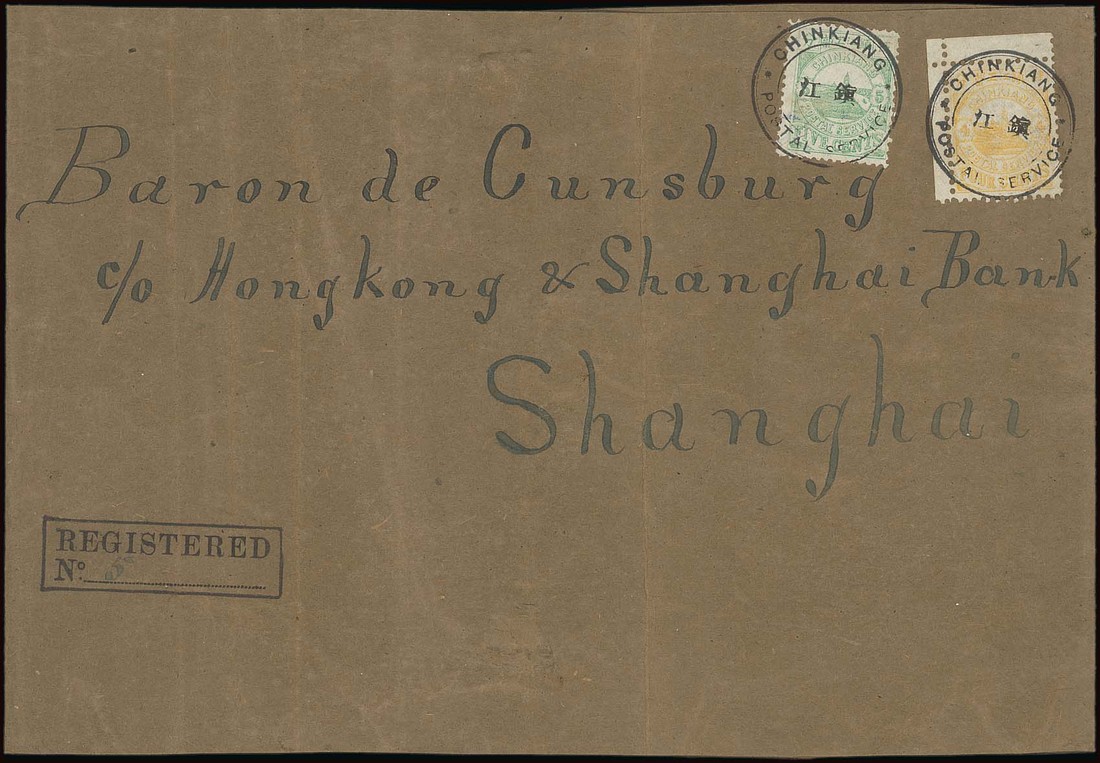 CHINKIANG
江 鎮
POSTAL SERVICE
CHINKIANG
5
POSTAL SERVICE
CHINKIANG
江 鎮
POSTAL SERVICE
Baron de Cunsburg
c/o Hongkong & Shanghai Bank
Shanghai
REGISTERED
No.